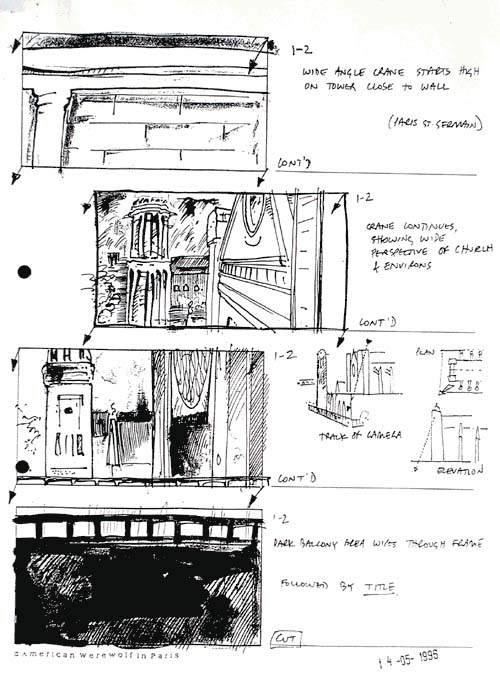 1-2
WIDE ANGLE CRANE STARTS HIGH
ON TOWER CLOSE TO WALL
(PARIS ST. GERMAIN)
CONT'D
1-2
CRANE CONTINUES,
SHOWING WIDE
PERSPECTIVE OF CHURCH
& ENVIRONS
CONT'D
1-2
PLAN
TRACK OF CAMERA
ELEVATION
CONT'D
1-2
DARK BALCONY AREA WIPES THROUGH FRAME
FOLLOWED BY TITLE
CUT
American Werewolf in Paris
14-05-1996